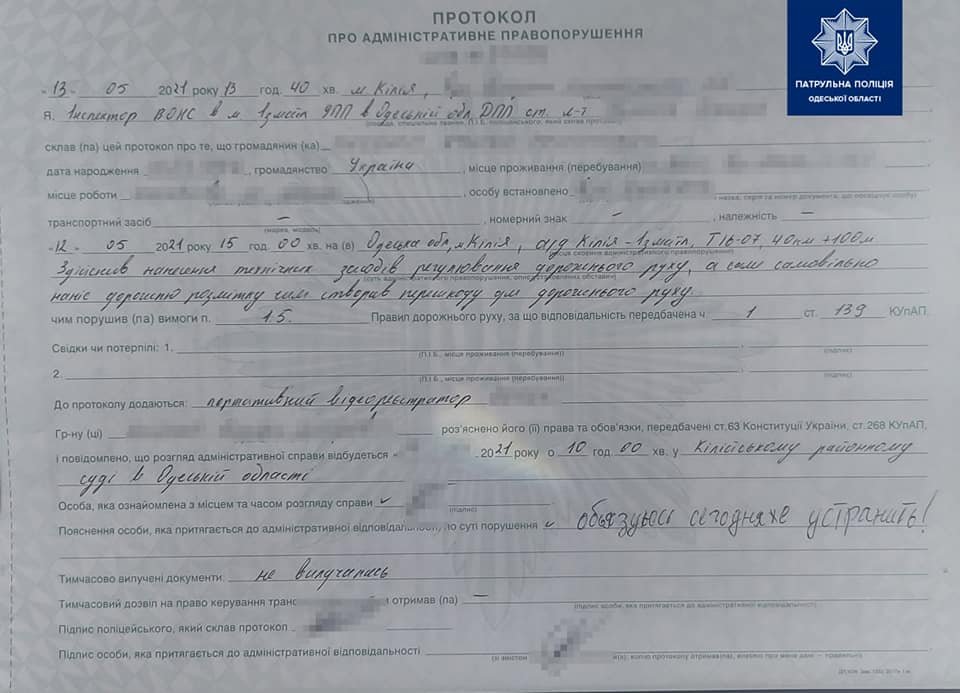 ПРОТОКОЛ
ПРО АДМІНІСТРАТИВНЕ ПРАВОПОРУШЕННЯ
ПАТРУЛЬНА ПОЛІЦІЯ
ОДЕСЬКОЇ ОБЛАСТІ
"13" 05 2021 року 13 год. 40 хв. м. Кілія,
Я, Інспектор ВОНС в м. Ізмаїл УПП в Одеській обл ДПП ст. л-т
склав (ла) цей протокол про те, що громадянин (ка)
дата народження , громадянство Україна , місце проживання (перебування)
місце роботи , особу встановлено
(назва, серія та номер документа, що посвідчує особу)
транспортний засіб — , номерний знак — , належність —
(марка, модель)
"12" 05 2021 року 15 год. 00 хв. на (в) Одеська обл, м. Кілія, а/д Кілія - Ізмаїл, Т16-07, 40км +100м
Здійснив нанесення технічних засобів регулювання дорожнього руху, а саме самовільно
наніс дорожню розмітку чим створив перешкоду для дорожнього руху.
чим порушив (ла) вимоги п. 1.5. Правил дорожнього руху, за що відповідальність передбачена ч. 1 ст. 139 КУпАП.
Свідки чи потерпілі: 1.
(П.І.Б., місце проживання (перебування)) (підпис)
2.
(П.І.Б., місце проживання (перебування)) (підпис)
До протоколу додаються: портативний відеореєстратор
Гр-ну (ці) роз'яснено його (її) права та обов'язки, передбачені ст.63 Конституції України, ст.268 КУпАП,
і повідомлено, що розгляд адміністративної справи відбудеться « 2021 року о 10 год. 00 хв. у Кілійському районному
суді в Одеській області
Особа, яка ознайомлена з місцем та часом розгляду справи
(підпис)
Пояснення особи, яка притягається до адміністративної відповідальності, по суті порушення обьязуюсь сегодня же устранить!
Тимчасово вилучені документи: не вилучались
Тимчасовий дозвіл на право керування отримав (ла) —
(підпис особи, яка притягається до адміністративної відповідальності)
Підпис поліцейського, який склав протокол
Підпис особи, яка притягається до адміністративної відповідальності